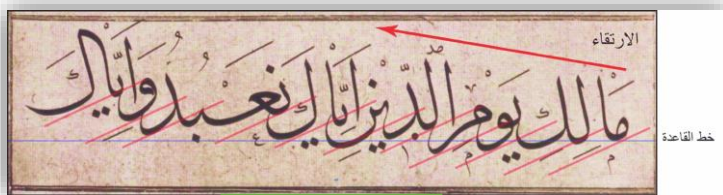 الارتقاء
مَالِكِ يَوْمِ الدِّيْنِ اِيَّاكَ نَعْبُدُ وَاِيَّاكَ
خط القاعدة